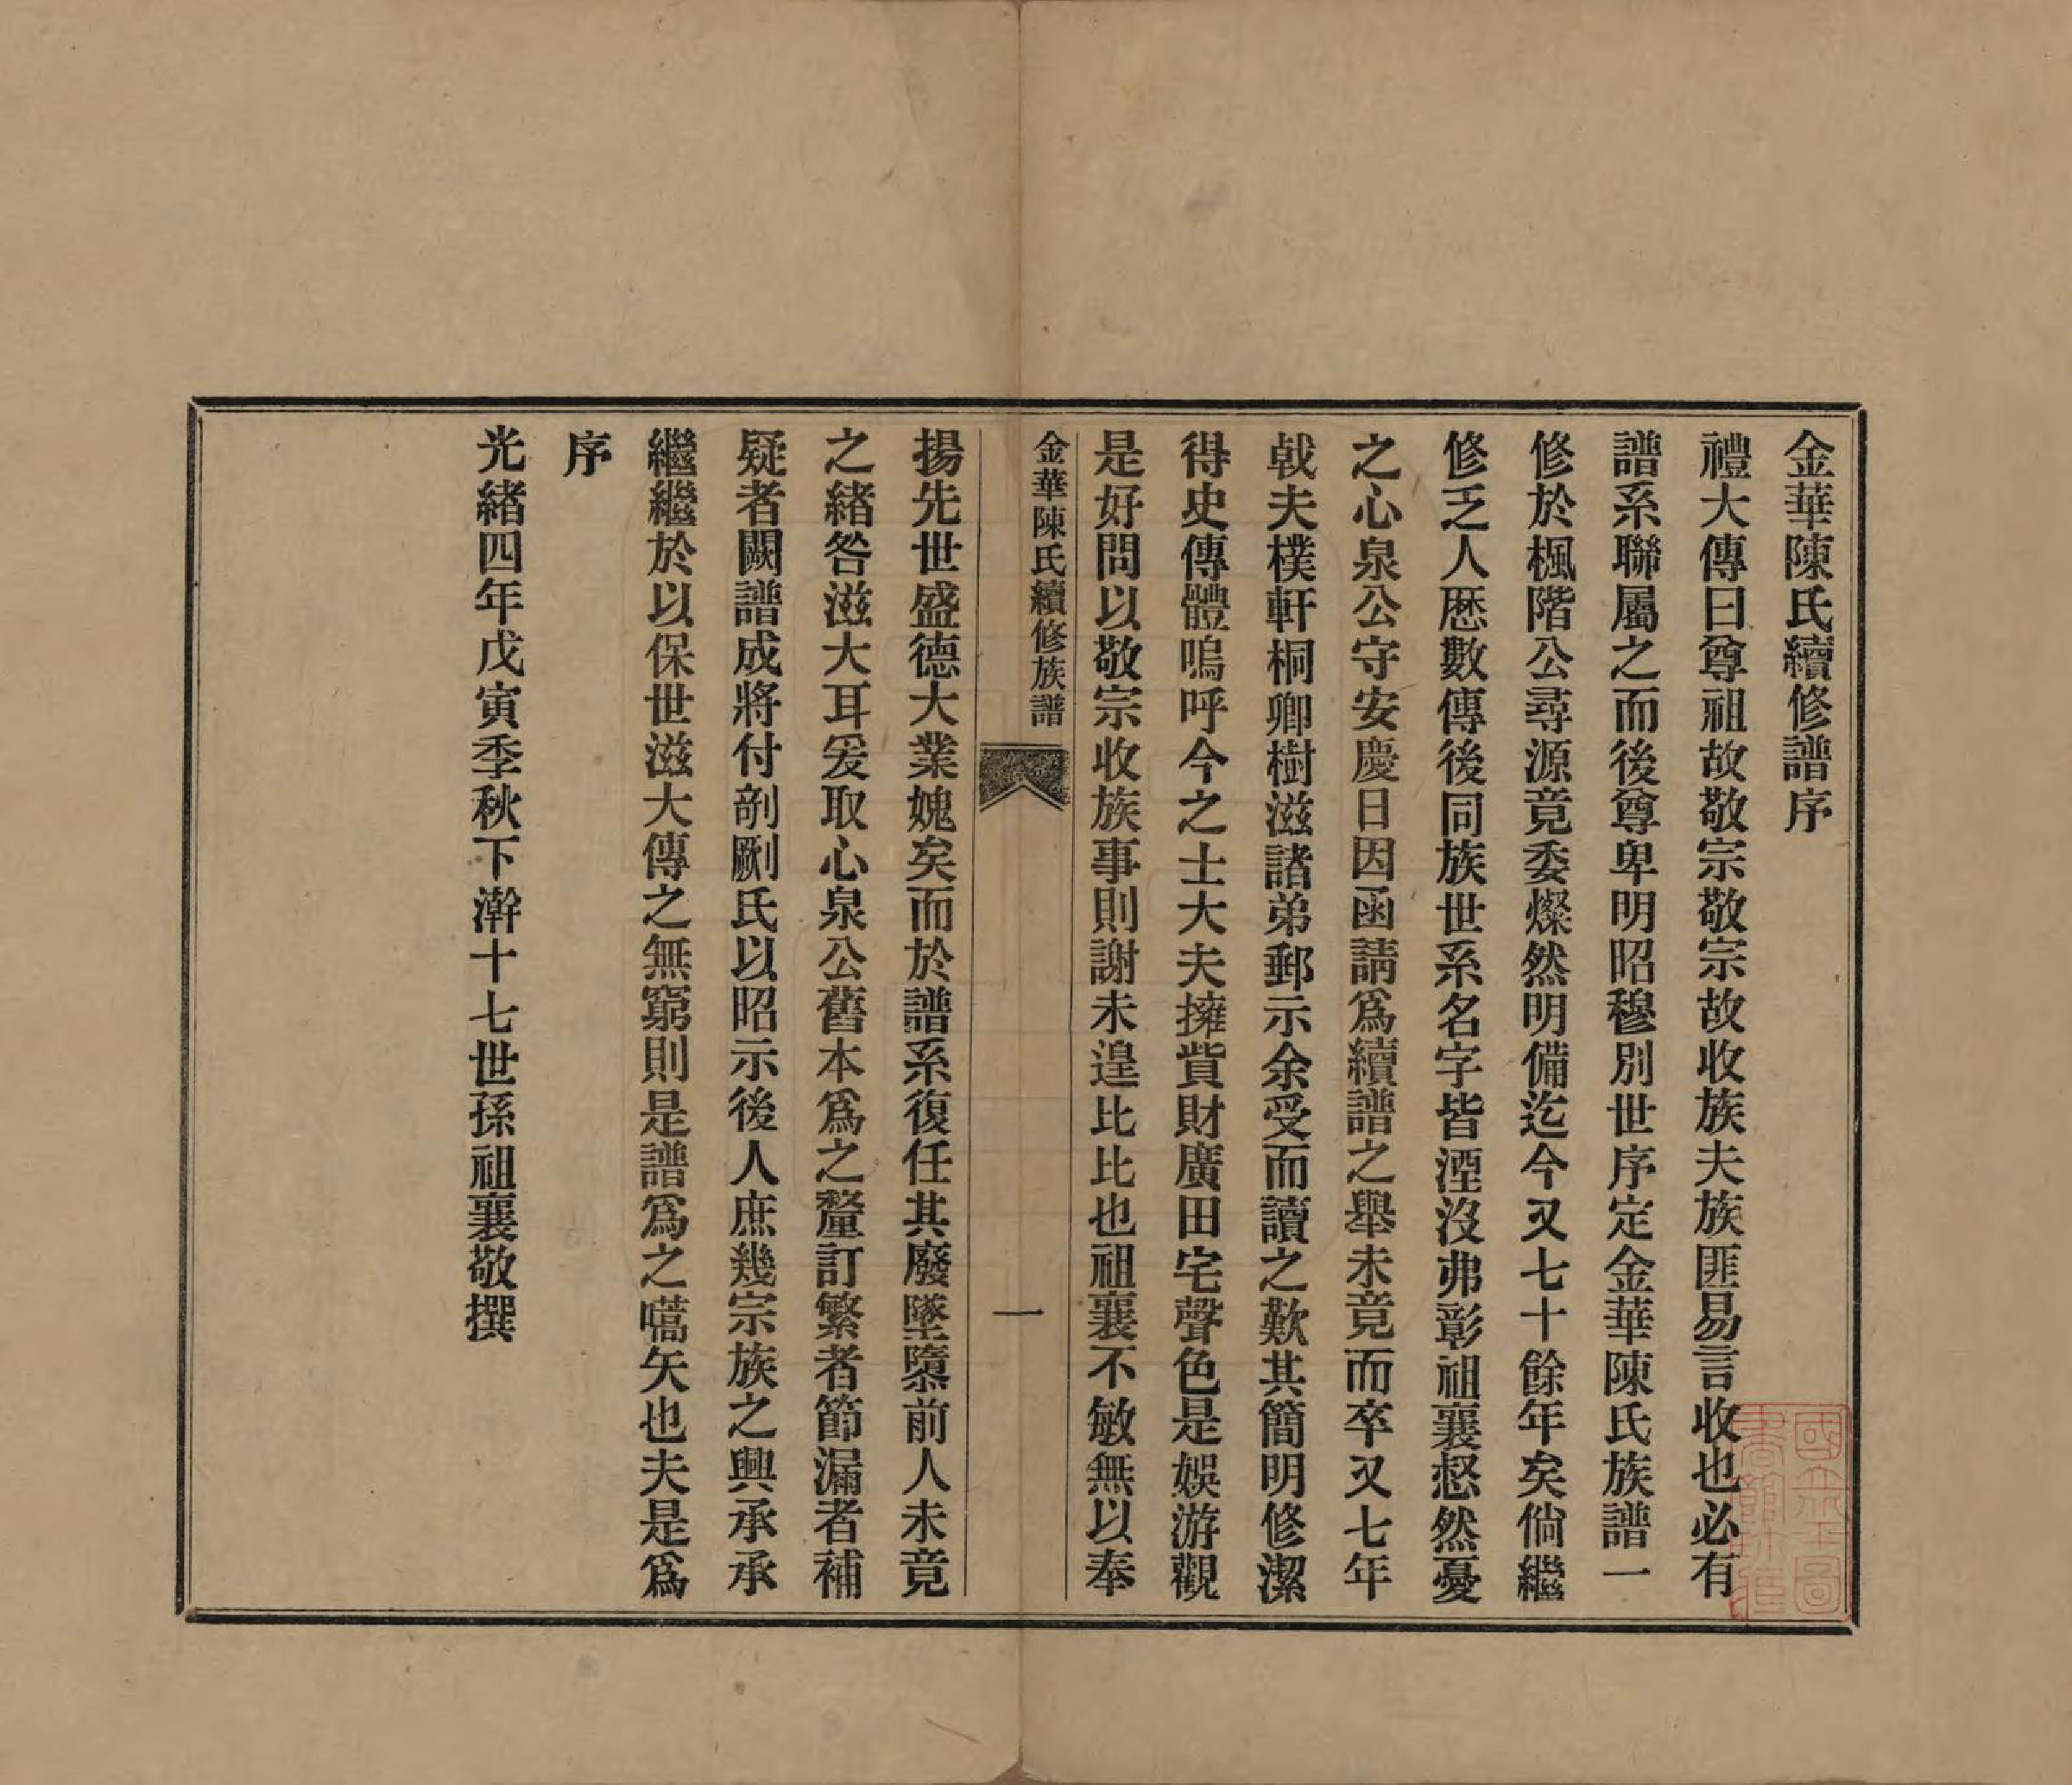 金華陳氏續修譜序
禮大傳曰尊祖故敬宗敬宗故收族夫族匪易言收也必有
譜系聯屬之而後尊卑明昭穆別世序定金華陳氏族譜一
修於楓階公尋源竟委燦然明備迄今又七十餘年矣倘繼
修乏人歷數傳後同族世系名字皆湮沒弗彰祖襄惄然憂
之心泉公守安慶日因函請爲續譜之舉未竟而卒又七年
戟夫樸軒桐卿樹滋諸弟郵示余受而讀之歎其簡明修潔
得史傳體嗚呼今之士大夫擁貲財廣田宅聲色是娛游觀
是好問以敬宗收族事則謝未遑比比也祖襄不敏無以奉
金華陳氏續修族譜
一
揚先世盛德大業媿矣而於譜系復任其廢墜隳前人未竟
之緒咎滋大耳爰取心泉公舊本爲之釐訂繁者節漏者補
疑者闕譜成將付剞劂氏以昭示後人庶幾宗族之興承承
繼繼於以保世滋大傳之無窮則是譜爲之嚆矢也夫是爲
序
光緒四年戊寅季秋下澣十七世孫祖襄敬撰
國立北平圖
書館珍藏